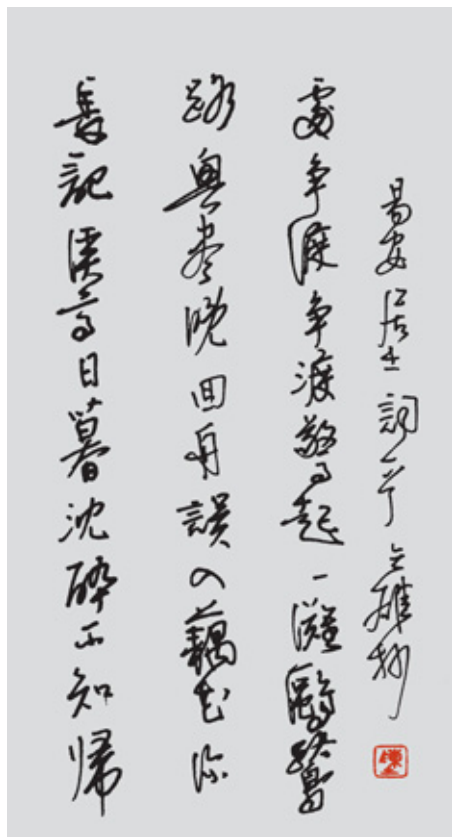 長記溪亭日暮沈醉不知歸
路興盡晚回舟誤入藕花深
處争渡争渡驚起一灘鷗鷺
易安居士詞一首 雄抄